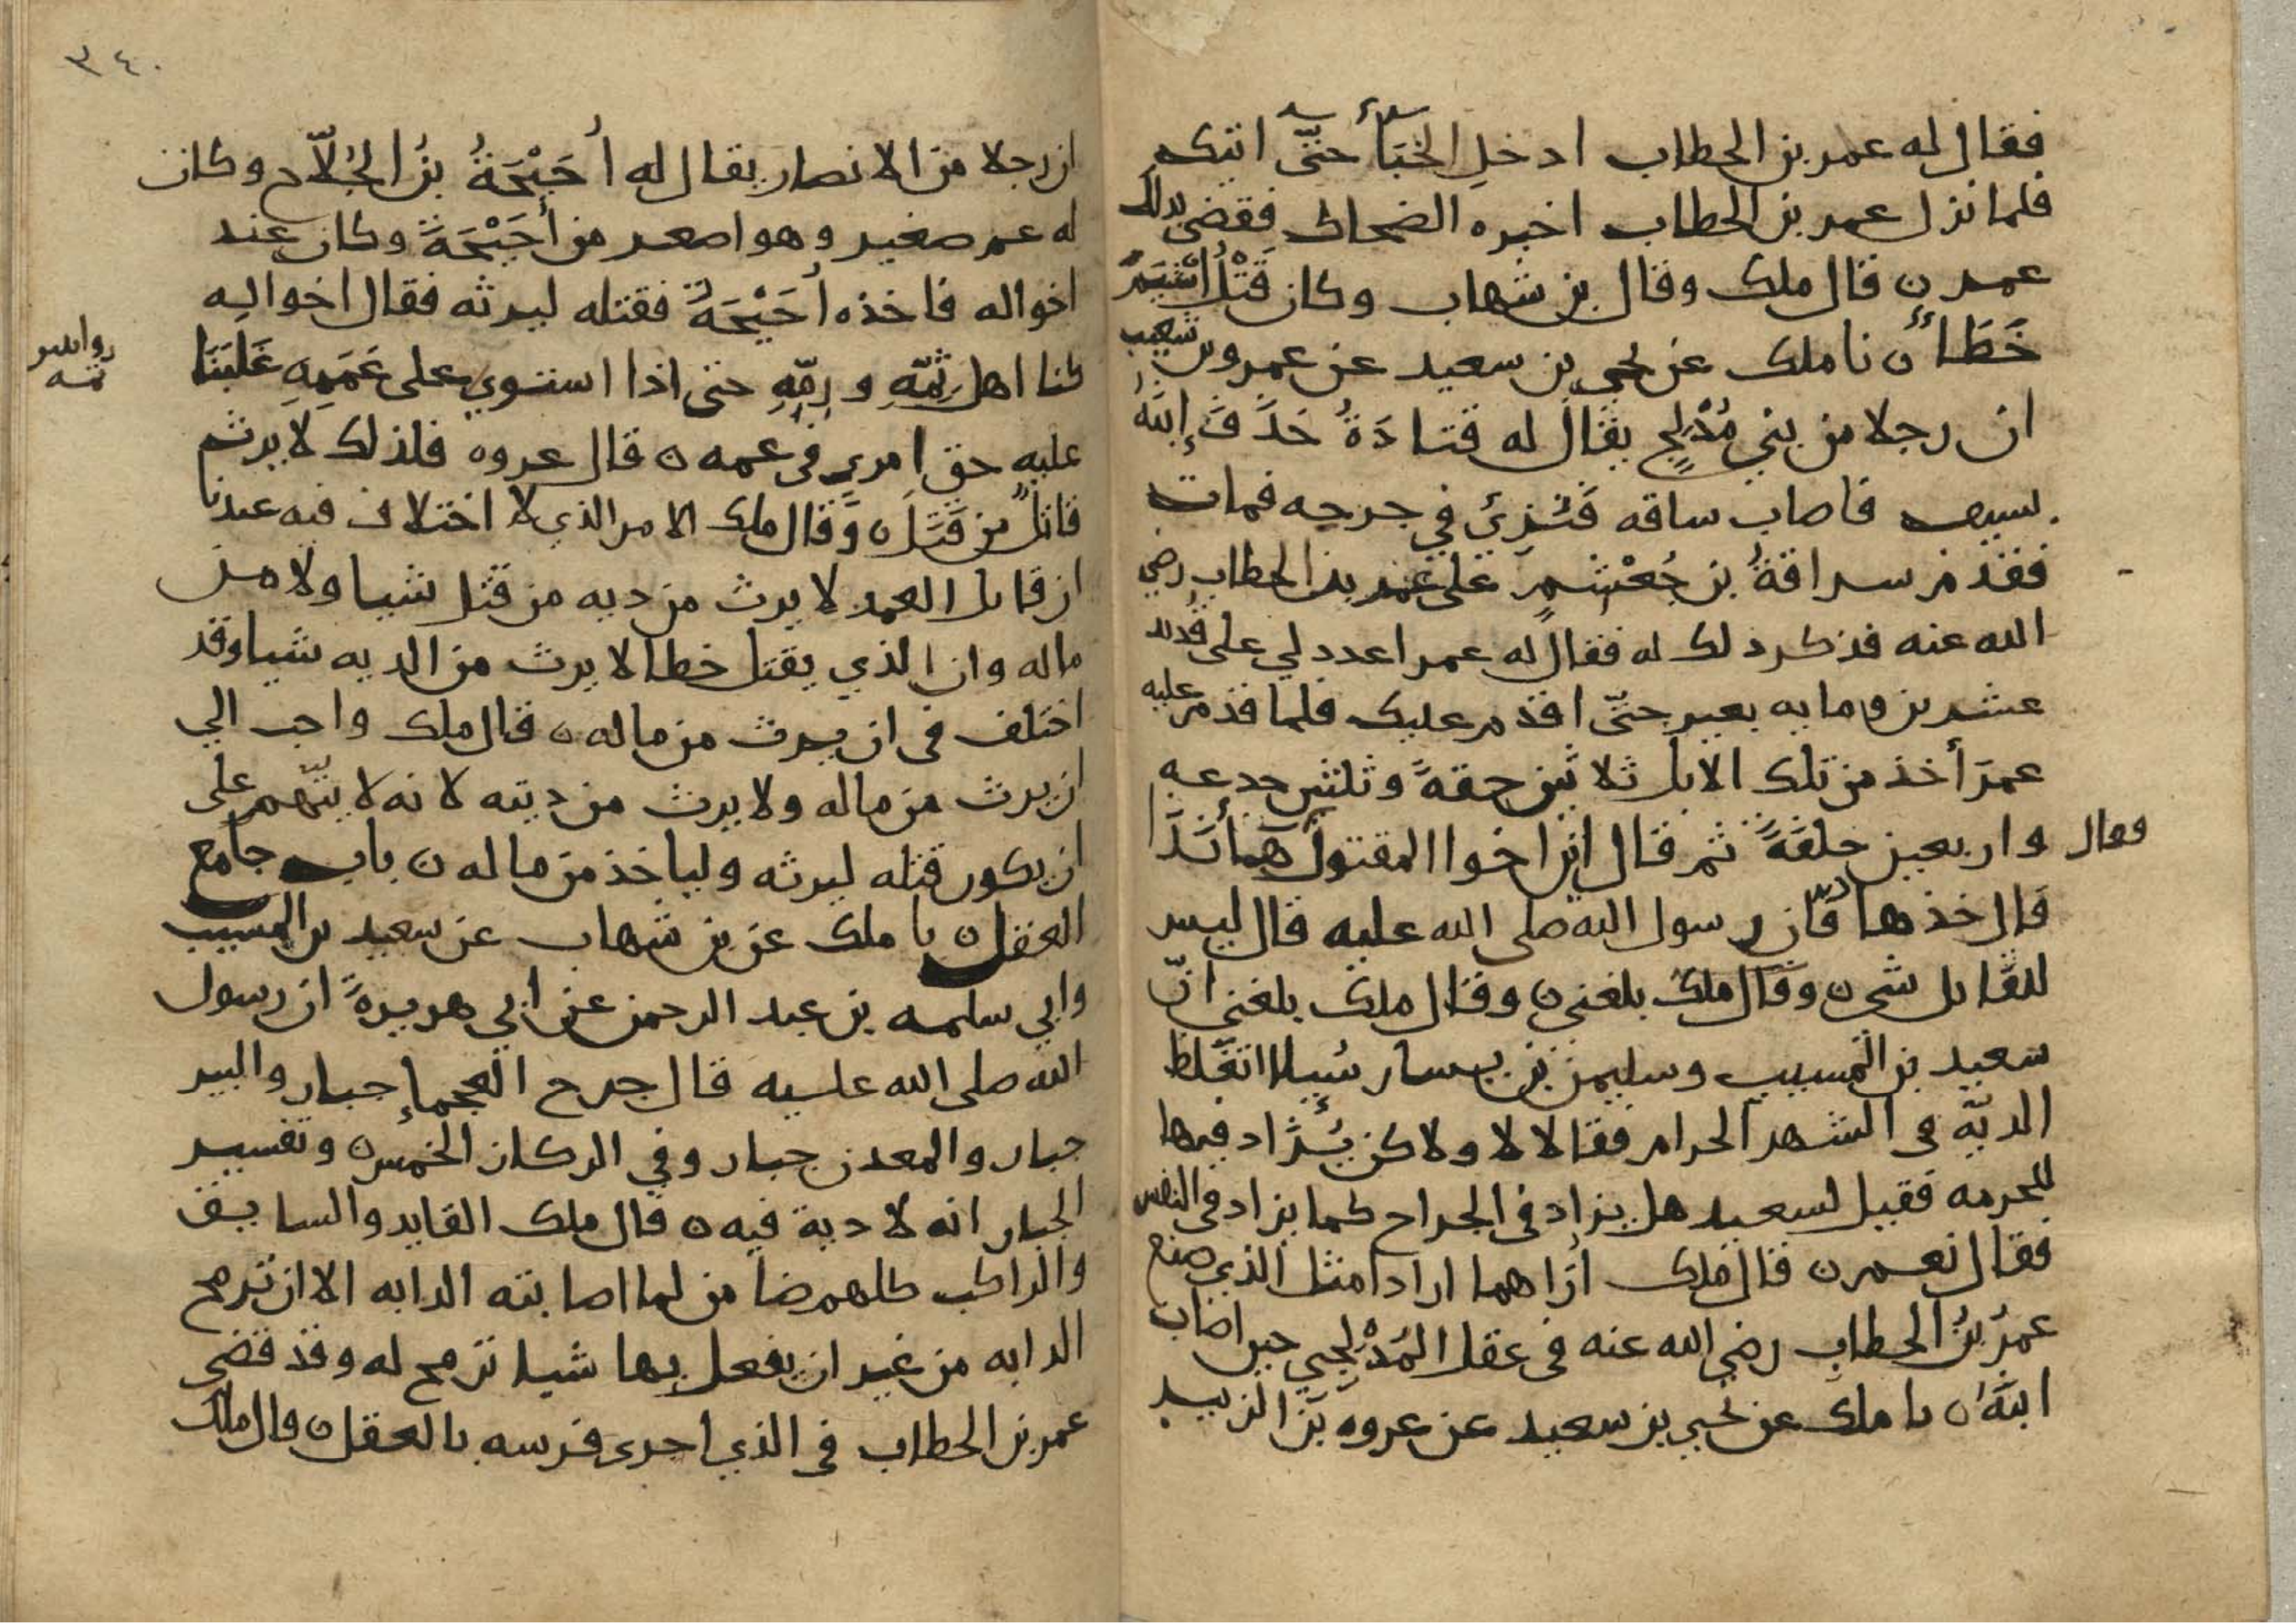 فقال له عمر بن الخطاب ادخلِ الخبَأَ حتّى اتيك
فلما نزل عمر بن الخطاب اخبره الضحاك فقضى بذلك
عمر ن قال ملك وقال بن شهاب وكان قَتْلُ اشْيَمَ
خَطَأً ن نا ملك عن يحيى بن سعيد عن عمرو بن شعيب
ان رجلا من بني مُدْلجٍ يقال له قتادَةُ حَذَفَ ابنَهُ
بسيف فاصاب ساقه فَنُزِيَ في جرحه فمات
فقدم سراقةُ بن جُعْشمٍ على عمر بن الخطاب رضي
الله عنه فذكر ذلك له فقال له عمر اعدد لي على قديد
عشرين وما به بعير حتّى اقدم عليك فلما قدم عليه
عمرَ أخذ من تلك الابل ثلاثين حقةً وثلثين جدعه
واربعين خلفَةً ثم قال اين اخوا المقتول هأنذا
وقال
قال خذها فانّ رسول الله صلى الله عليه قال ليس
للقاتل شي ن وقال ملك بلغني ن وقال ملك بلغني انّ
سعيد بن المسيب وسليمن بن يسار سُيلا اتغلظ
الديّة في الشهر الحرام فقالا لا ولاكن يُزاد فيها
للحرمه فقيل لسعيد هل يزاد في الجراح كما يزاد في النفس
فقال نعم ن قال ملك أُراهما ارادا مثل الذي صنع
عمرُ بنُ الخطاب رضي الله عنه في عقل المُدْلجي حين اصاب
ابنَهُ ن نا ملك عن يحيى بن سعيد عن عروه بن الزبير
٣٤٠
ان رجلا من الانصار يقال له أُحَيْحَةُ بنُ الجُلاّح وكان
له عم صغير وهو اصغر من أُحَيْحَةَ وكان عند
اخواله فاخذه أُحَيْحَةُ فقتله ليرثه فقال اخواله
كنا اهل ثمّهِ ورمّهِ حتى اذا استوي على عَمَمِهِ غَلَبَنَا
عليه حق امرىٍ في عمه ن قال عروه فلذلك لا يرث
قاتلٌ من قَتَلَ ن وقال ملك الامر الذي لا اختلاف فيه عندنا
ان قاتل العمد لا يرث من ديه من قتل شيا ولا من
ماله وان الذي يقتل خطا لا يرث من الديه شيا وقد
اختلف في ان يرث من ماله ن قال ملك واحب الي
ان يرث من ماله ولا يرث من ديته لانه لا يتّهم على
ان يكون قتله ليرثه ولياخذ من ماله ن باب جامع
العقل ن نا ملك عن بن شهاب عن سعيد بن المسيب
وابي سلمه بن عبد الرحمن عن ابي هريرةَ ان رسول
الله صلى الله عليه قال جرح العجماءِ جبار والبير
جبار والمعدن جبار وفي الركاز الخمس ن وتفسير
الجبار انه لا دية فيه ن قال ملك القايد والسايق
والراكب كلهم ضامن لما اصابته الدابه الا ان ترمح
الدابه من غير ان يفعل بها شيا ترمح له وقد قضى
عمر بن الخطاب في الذي اجرى فرسه بالعقل ن وال ملك